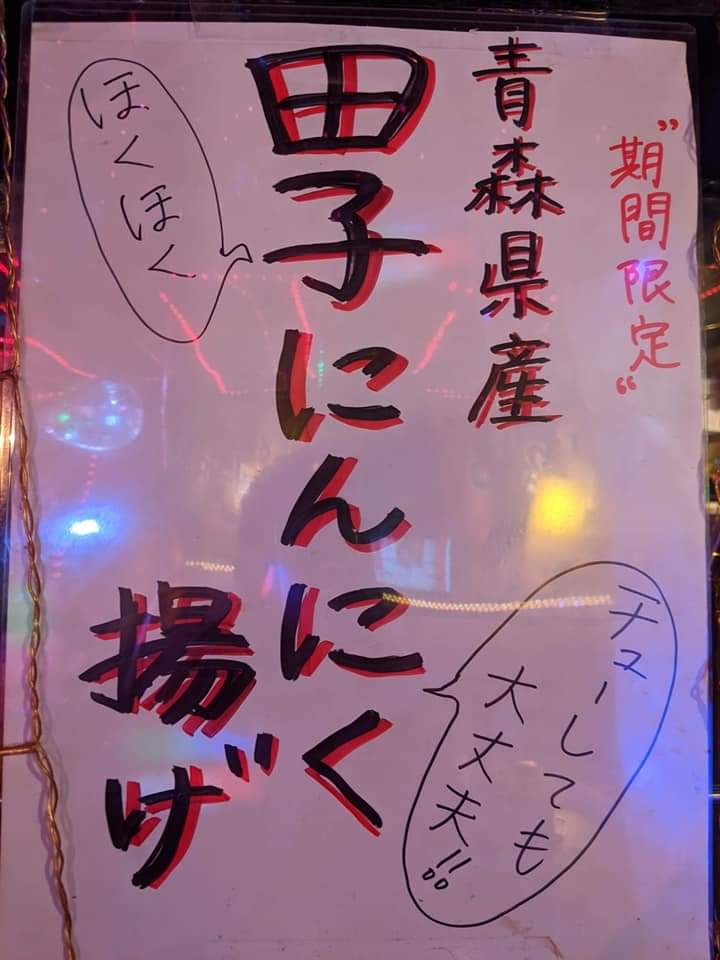 "期間限定"
青森県産
田子にんにく
揚げ
ほくほく
チューしても
大丈夫!!